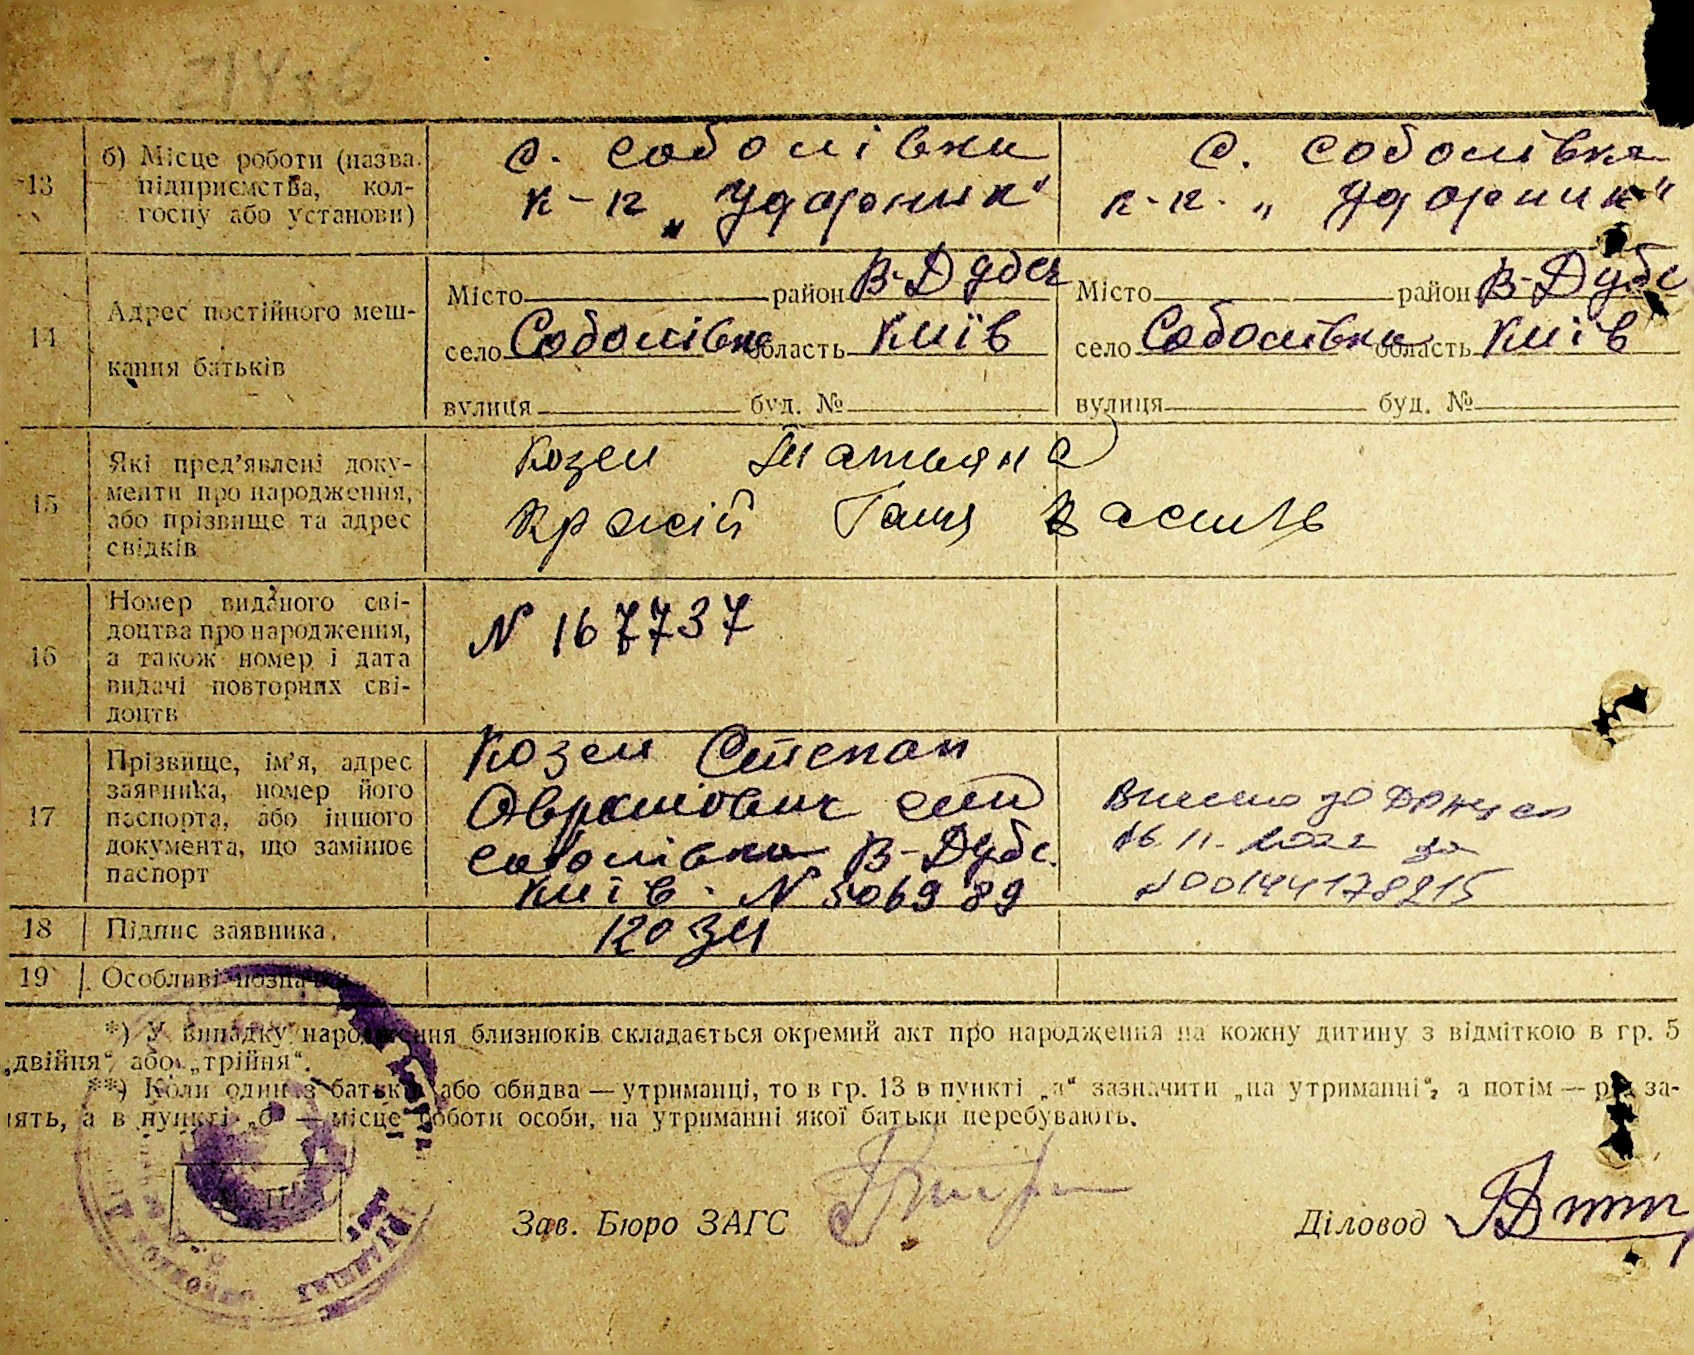 13 б) Місце роботи (назва підприємства, колгоспу або установи)
с. Соболівки с. Соболівка
к-п „Ударник“ к-п. „Ударник“
14 Адрес постійного мешкання батьків
Місто район В-Дубеч Місто район В-Дубе
село Соболівка область Київ село Соболівка область Київ
вулиця буд. № вулиця буд. №
15 Які пред’явлені документи про народження, або прізвище та адрес свідків
Козел Татьяна
Галя Василів
16 Номер виданого свідоцтва про народження, а також номер і дата видачі повторних свідоцтв
N 167737
17 Прізвище, ім’я, адрес заявника, номер його паспорта, або іншого документа, що замінює паспорт
Козел Степан
село
Соболівка В-Дубе.
Київ. N 506989
16.11.2022 за
N00144178215
18 Підпис заявника. козел
19 Особливі позначки
*) У випадку народження близнюків складається окремий акт про народження на кожну дитину з відміткою в гр. 5
„двійня“ або „трійня“.
**) Коли один з батьків або обидва — утриманці, то в гр. 13 в пункті „а“ зазначити „на утриманні“, а потім — рід за-
нять, а в пункті „б“ — місце роботи особи, на утриманні якої батьки перебувають.
Зав. Бюро ЗАГС Діловод